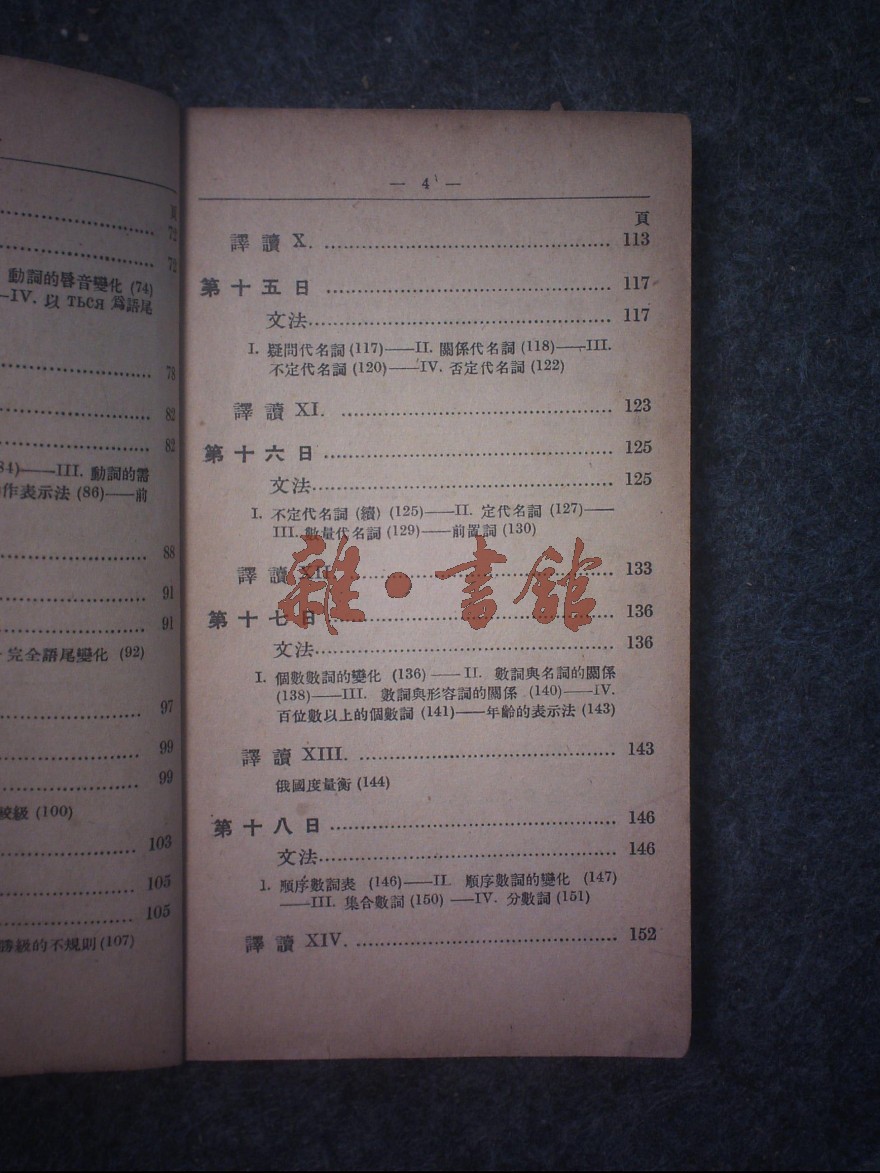 頁
72
72
動詞的唇音變化 (74)
—IV. 以 ться 爲語尾
78
82
82
84)——III. 動詞的需
作表示法 (86)——前
88
91
91
完全語尾變化 (92)
97
99
99
較級 (100)
103
105
105
勝級的不規則 (107)
— 4 —
頁
譯讀 X. ........................................ 113
第十五日 ........................................ 117
文法........................................ 117
I. 疑問代名詞 (117)——II. 關係代名詞 (118)——III.
不定代名詞 (120)——IV. 否定代名詞 (122)
譯讀 XI. ........................................ 123
第十六日 ........................................ 125
文法........................................ 125
I. 不定代名詞 (續) (125)——II. 定代名詞 (127)——
III. 數量代名詞 (129)——前置詞 (130)
譯讀 XII. ........................................ 133
第十七日 ........................................ 136
文法........................................ 136
I. 個數數詞的變化 (136)——II. 數詞與名詞的關係
(138)——III. 數詞與形容詞的關係 (140)——IV.
百位數以上的個數詞 (141)——年齡的表示法 (143)
譯讀 XIII. ........................................ 143
俄國度量衡 (144)
第十八日 ........................................ 146
文法........................................ 146
I. 順序數詞表 (146)——II. 順序數詞的變化 (147)
——III. 集合數詞 (150) —IV. 分數詞 (151)
譯讀 XIV. ........................................ 152
雜·書館